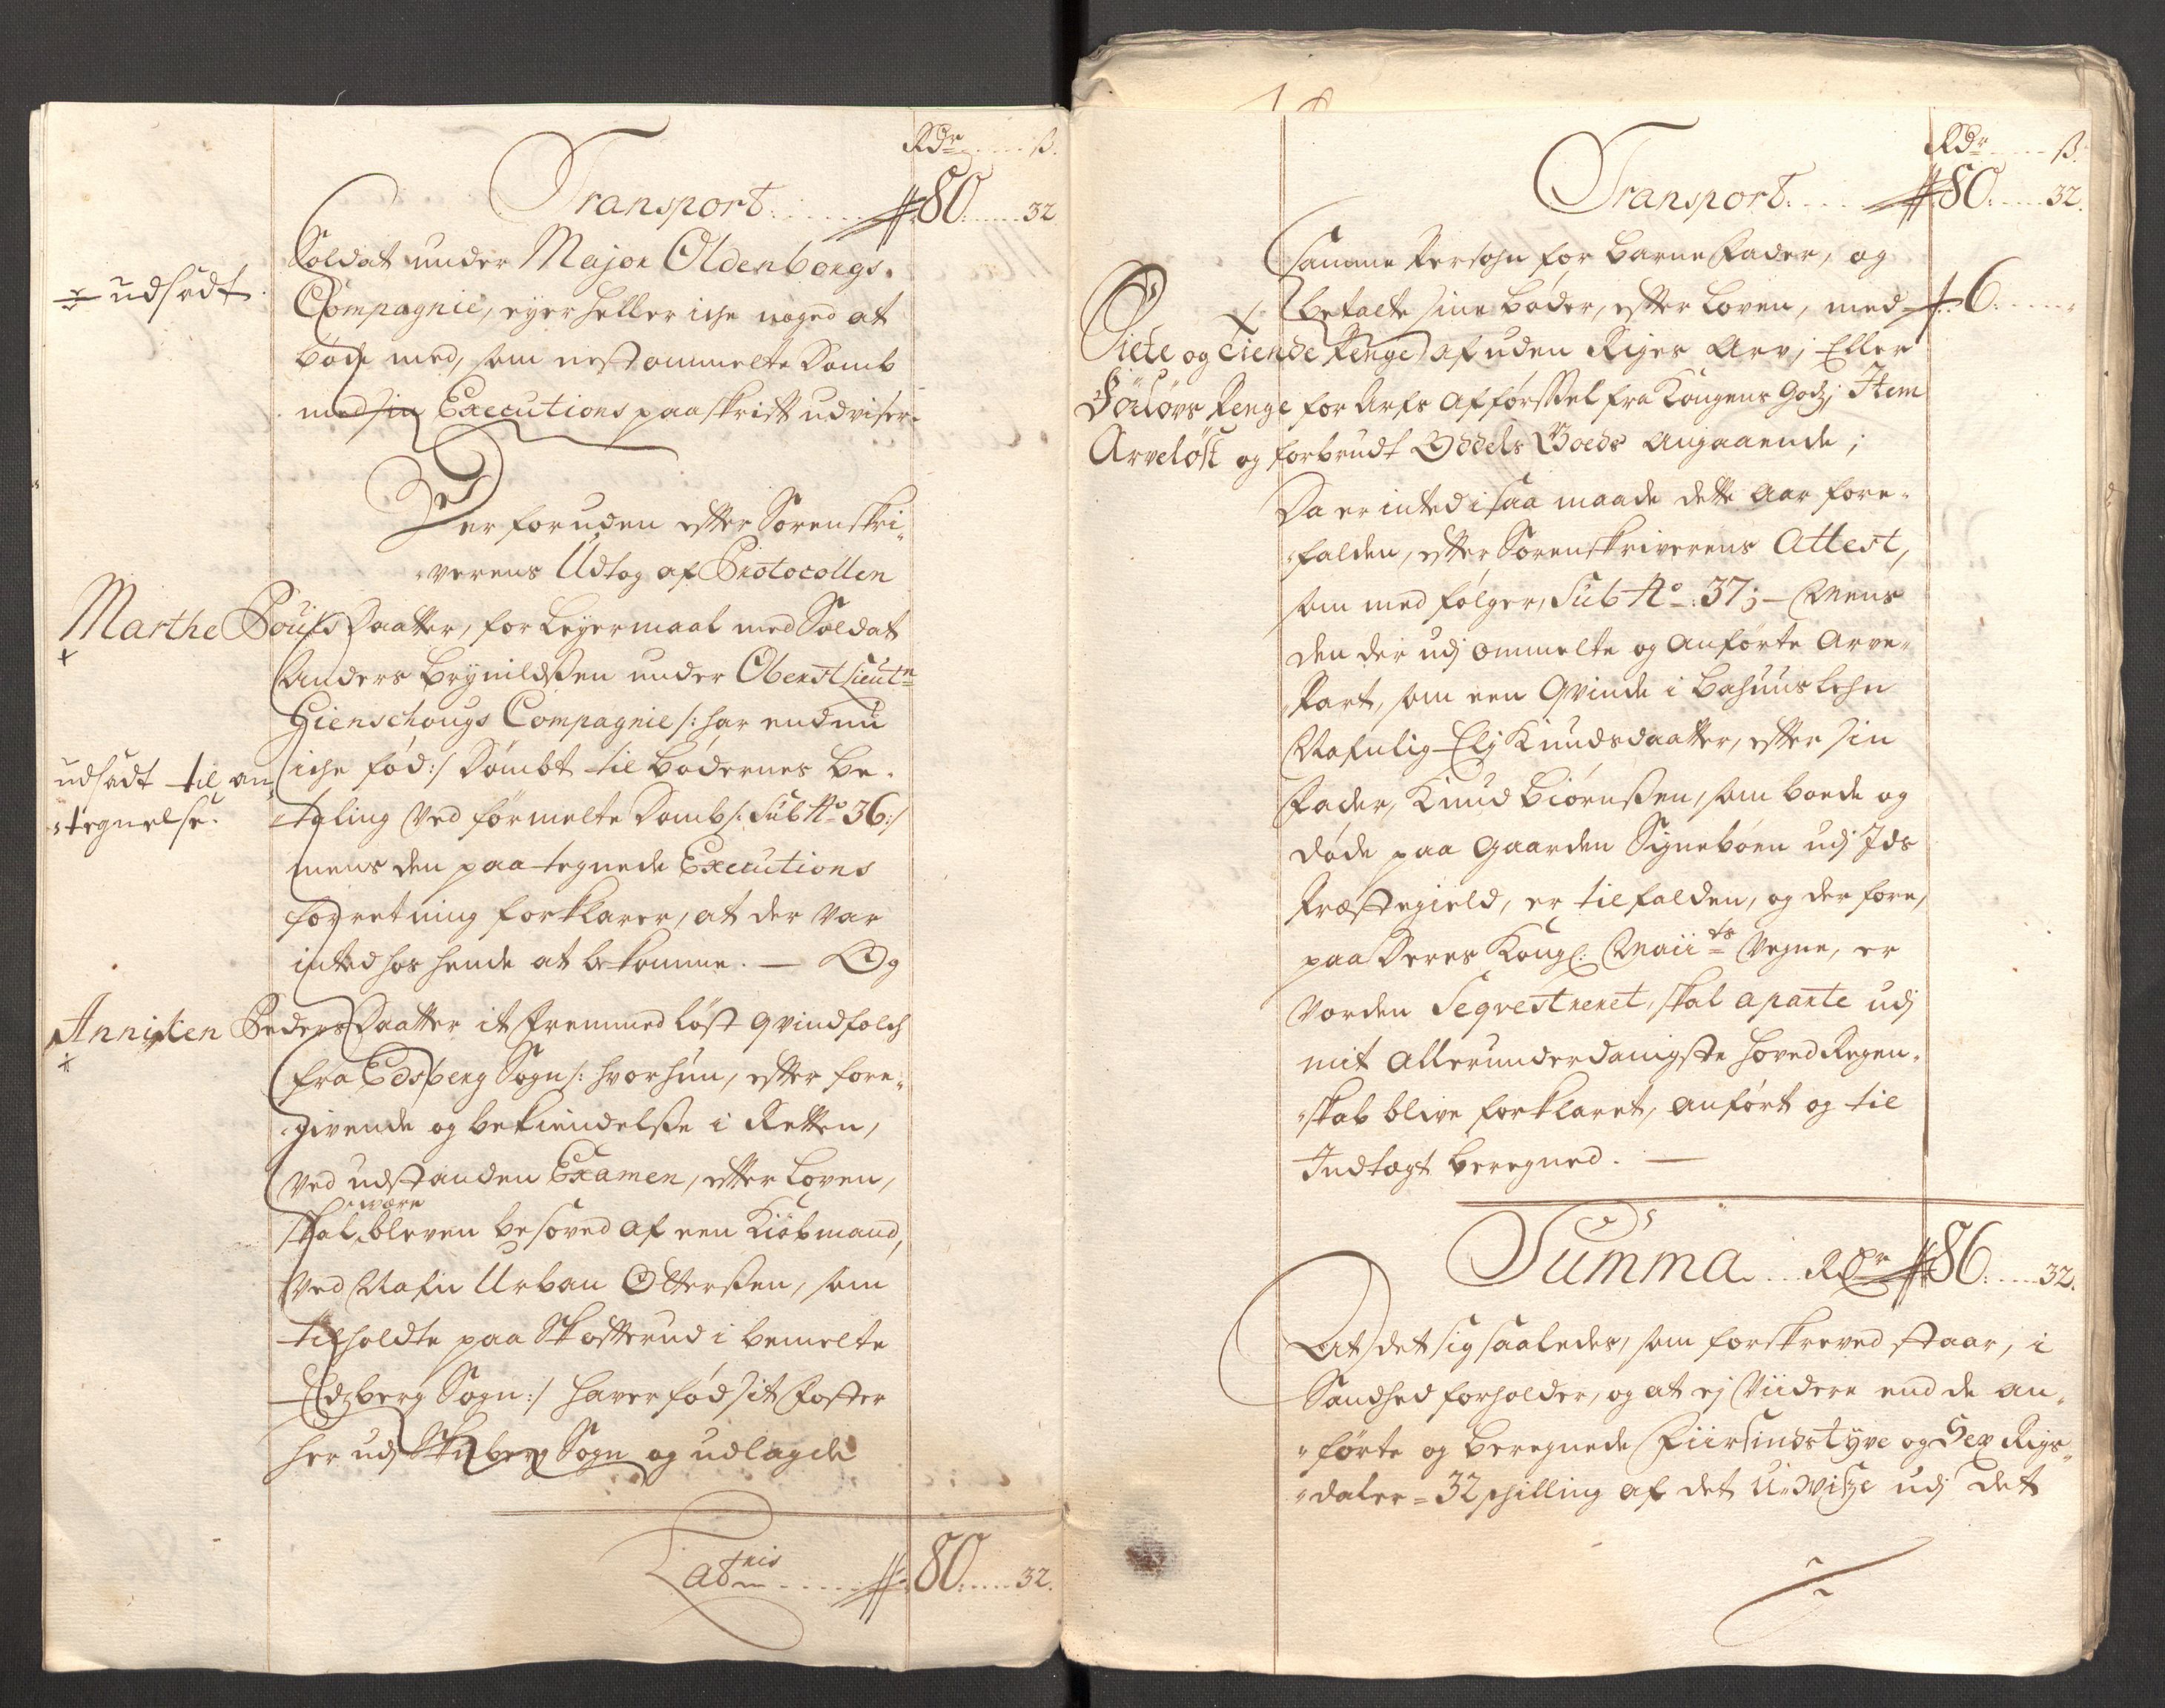 Rdr ß.
Transport. 80. 32
Soldat under Major Oldenborgs
udsadt.
Compagnie, eyer heller iche noged at
bøde med, som nestommelte Domb
med sin Executions paaskrifft udviser.
Der foruden effter Sorenskri-
verens Udtog af Protocollen
Marthe Pouls Daatter, for Leyermaal med Soldat
Anders Brynildßen under Oberst Lieutn
Hienschougs Compagnie /: har endnu
iche fød :/ Dømbt til bødernes be-
udsadt til an-
tegnelse.
taling ved førmelte Domb /: Sub No 36 :/
mens den paategnede Executions
forretning forklarer, at der var
inted hos hende at bekomme. — Og
Anniken Peders Daatter it fremmed løst qvindfolch
fra Edsberg Sogn /: hvor hun, effter fore-
givende og bekiendelße i Retten,
ved udstanden Examen, effter Loven,
være
skal bleven besoved af een Kiøbmand,
ved Nafn Urban Otterßen, som
tilholdte paa Skotterud i bemelte
Edzberg Sogn :/ haver fød sit Foster
her udj Skiberg Sogn og udlagde
Latris 80. 32.
Rdr ß.
Transport. 80. 32.
samme Persohn for barne Fader, og
betalte sine bøder, effter Loven, med 6.
Siette og tiende Penge af uden Riges Arv; Eller
Førlovs Penge for Arfs afførssel fra Kongens Godz; Item
Arveløst og forbrudt Oddels Goeds angaaende;
Da er inted i saa maade dette Aar fore-
falden, effter Sorenskriverens Attest,
som med følger, Sub No. 37; — Mens
den der udj ommelte og anførte Arve-
Part, som een Qvinde i Bahuus Lehn
Nafnlig Elj Knudsdaatter, effter sin
Fader, Knud Biørnßen, som boede og
døde paa gaarden Signebøen udj Ids
Præstegield, er tilfalden, og derfore,
paa Deres Kongl: Maiits Vegne, er
vorden Seqvestreret, skal aparte udj
mit allerunderdanigste hoved Regen-
skab blive forklaret, anført og til
Indtægt beregned. —
Summa Rdr 86. 32.
At det sig saaledes, som forskreved staar, i
Sandhed forholder, og at ej Viidere end de an-
førte og beregnede Fiirsindstyve og Sex Rigs-
daler = 32 skilling af det U-wisze udj det